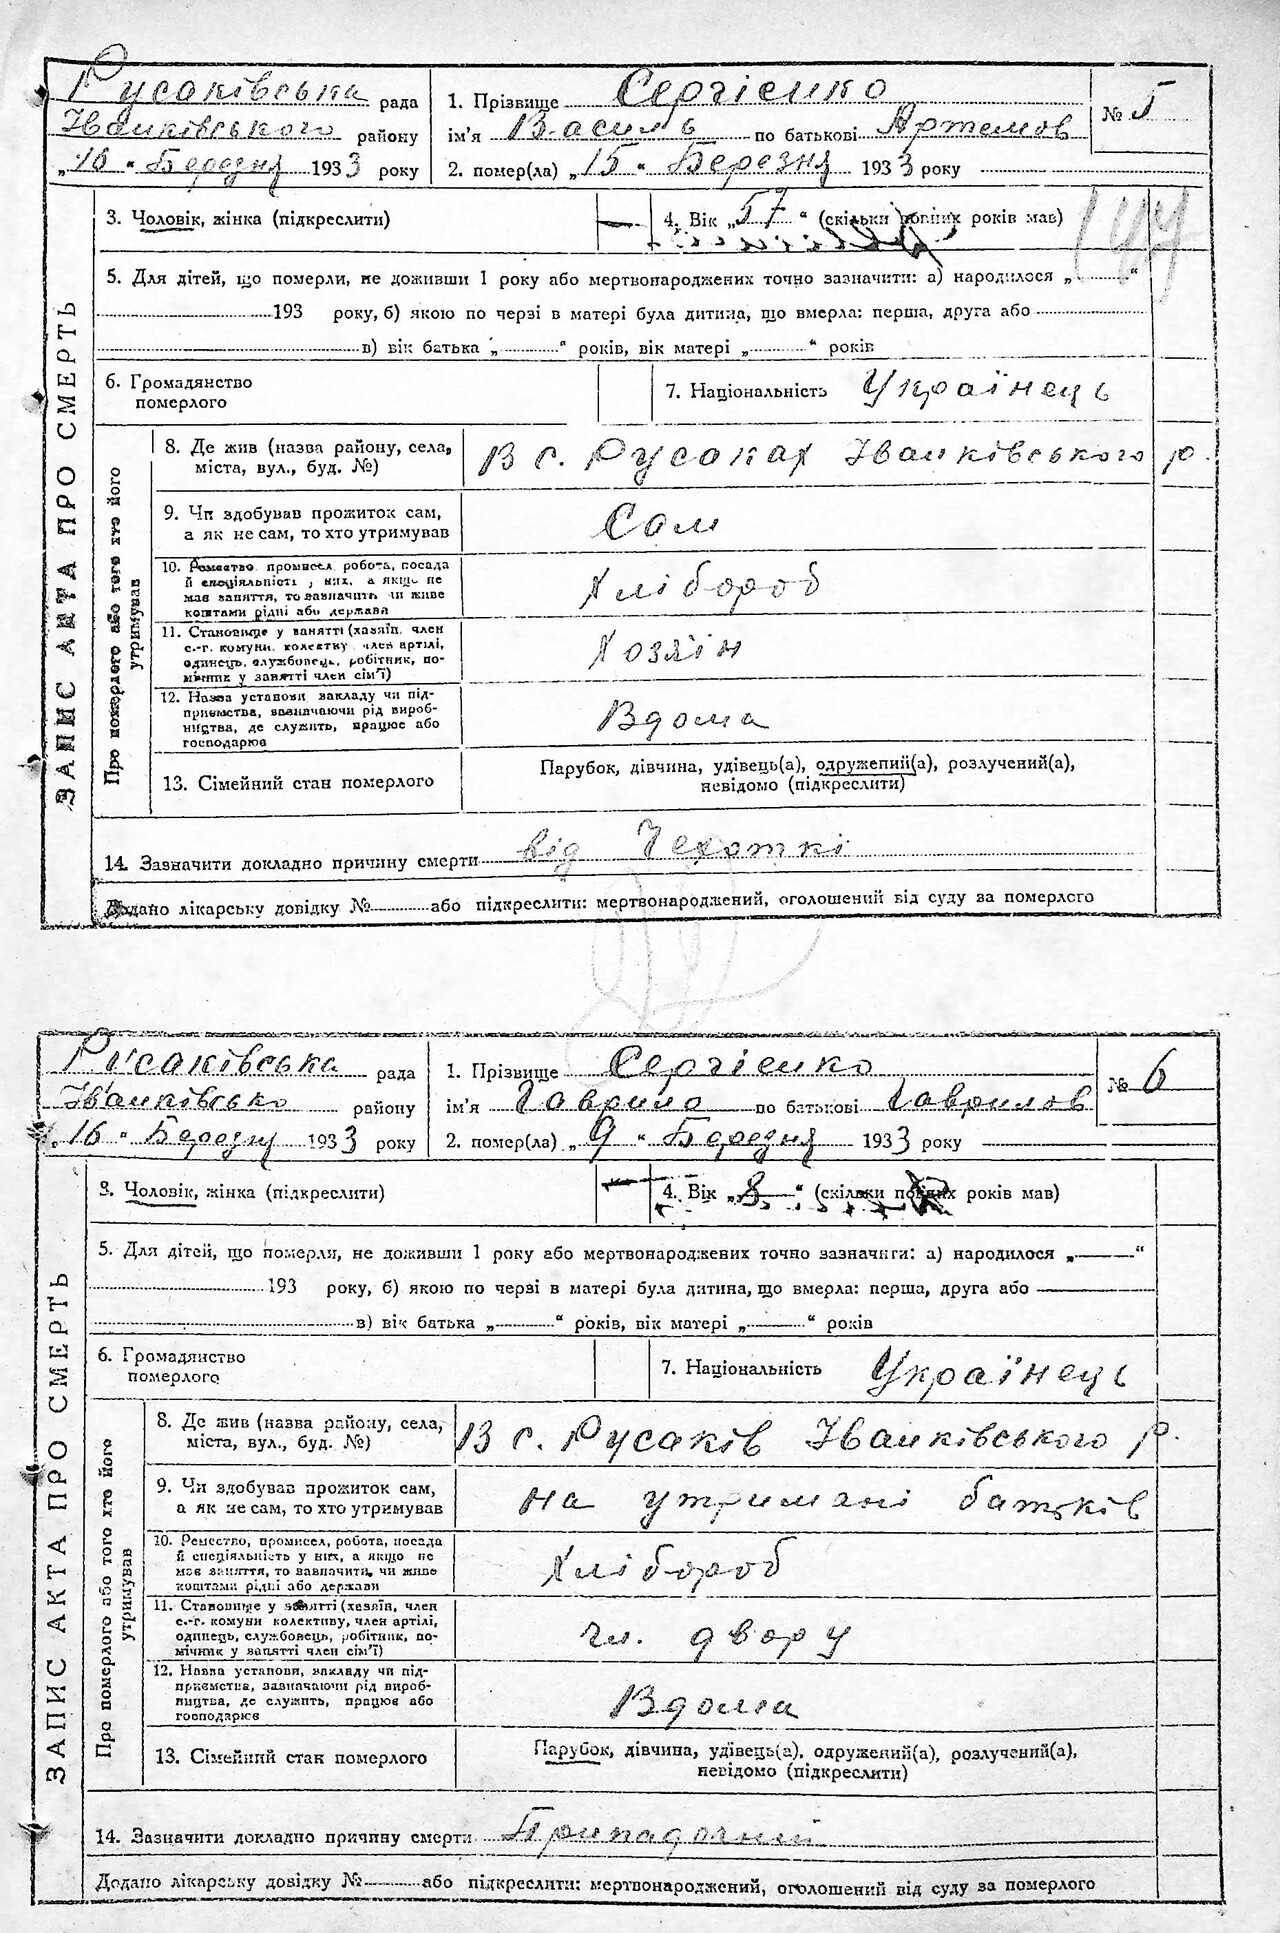 Русаківська рада
Іванківського району
„16“ Березня 1933 року
1. Прізвище Сергієнко
ім'я Василь по батькові Артемов
2. помер(ла) „15“ Березня 1933 року
№ 5
3. Чоловік, жінка (підкреслити)
4. Вік „57“ (скільки повних років мав)
144
5. Для дітей, що померли, не доживши 1 року або мертвонароджених точно зазначити: а) народилося „ “
193 року, б) якою по черзі в матері була дитина, що вмерла: перша, друга або
в) вік батька „ “ років, вік матері „ “ років
6. Громадянство
померлого
7. Національність Українець
ЗАПИС АКТА ПРО СМЕРТЬ
Про померлого або того хто його
утримував
8. Де жив (назва району, села,
міста, вул., буд. №)
В с. Русаках Іванківського р.
9. Чи здобував прожиток сам,
а як не сам, то хто утримував
Сам
10. Ремество, промисел, робота, посада
й спеціяльність у них, а якщо не
має заняття, то зазначить чи живе
коштами рідні або держави
Хлібороб
11. Становище у занятті (хазяїн, член
с.-г. комуни колективу член артілі,
одинець, службовець, робітник, по-
мічник у занятті член сім'ї)
Хозяїн
12. Назва установи закладу чи під-
приємства, зазначаючи рід вироб-
ництва, де служить, працює або
господарює
Вдома
13. Сімейний стан померлого
Парубок, дівчина, удівець(а), одружений(а), розлучений(а),
невідомо (підкреслити)
14. Зазначити докладно причину смерти від Чехоткі
Додано лікарську довідку № або підкреслити: мертвонароджений, оголошений від суду за померлого
Русаківська рада
Іванківсько району
„16“ Березня 1933 року
1. Прізвище Сергієнко
ім'я Гаврило по батькові Гаврилов
2. помер(ла) „9“ Березня 1933 року
№ 6
3. Чоловік, жінка (підкреслити)
4. Вік „8“ (скільки повних років мав)
5. Для дітей, що померли, не доживши 1 року або мертвонароджених точно зазначити: а) народилося „ “
193 року, б) якою по черзі в матері була дитина, що вмерла: перша, друга або
в) вік батька „ “ років, вік матері „ “ років
6. Громадянство
померлого
7. Національність Українець
ЗАПИС АКТА ПРО СМЕРТЬ
Про померлого або того хто його
утримував
8. Де жив (назва району, села,
міста, вул., буд. №)
В с. Русаків Іванківського р.
9. Чи здобував прожиток сам,
а як не сам, то хто утримував
на утримані батьків
10. Ремество, промисел, робота, посада
й спеціяльність у них, а якщо не
має заняття, то зазначити, чи живе
коштами рідні або держави
Хлібороб
11. Становище у занятті (хазяїн, член
с.-г. комуни колективу, член артілі,
одинець, службовець, робітник, по-
мічник у занятті член сім'ї)
чл. двору
12. Назва установи, закладу чи під-
приємства, зазначаючи рід вироб-
ництва, де служить, працює або
господарює
Вдома
13. Сімейний стан померлого
Парубок, дівчина, удівець(а), одружений(а), розлучений(а),
невідомо (підкреслити)
14. Зазначити докладно причину смерти Припадочний
Додано лікарську довідку № або підкреслити: мертвонароджений, оголошений від суду за померлого